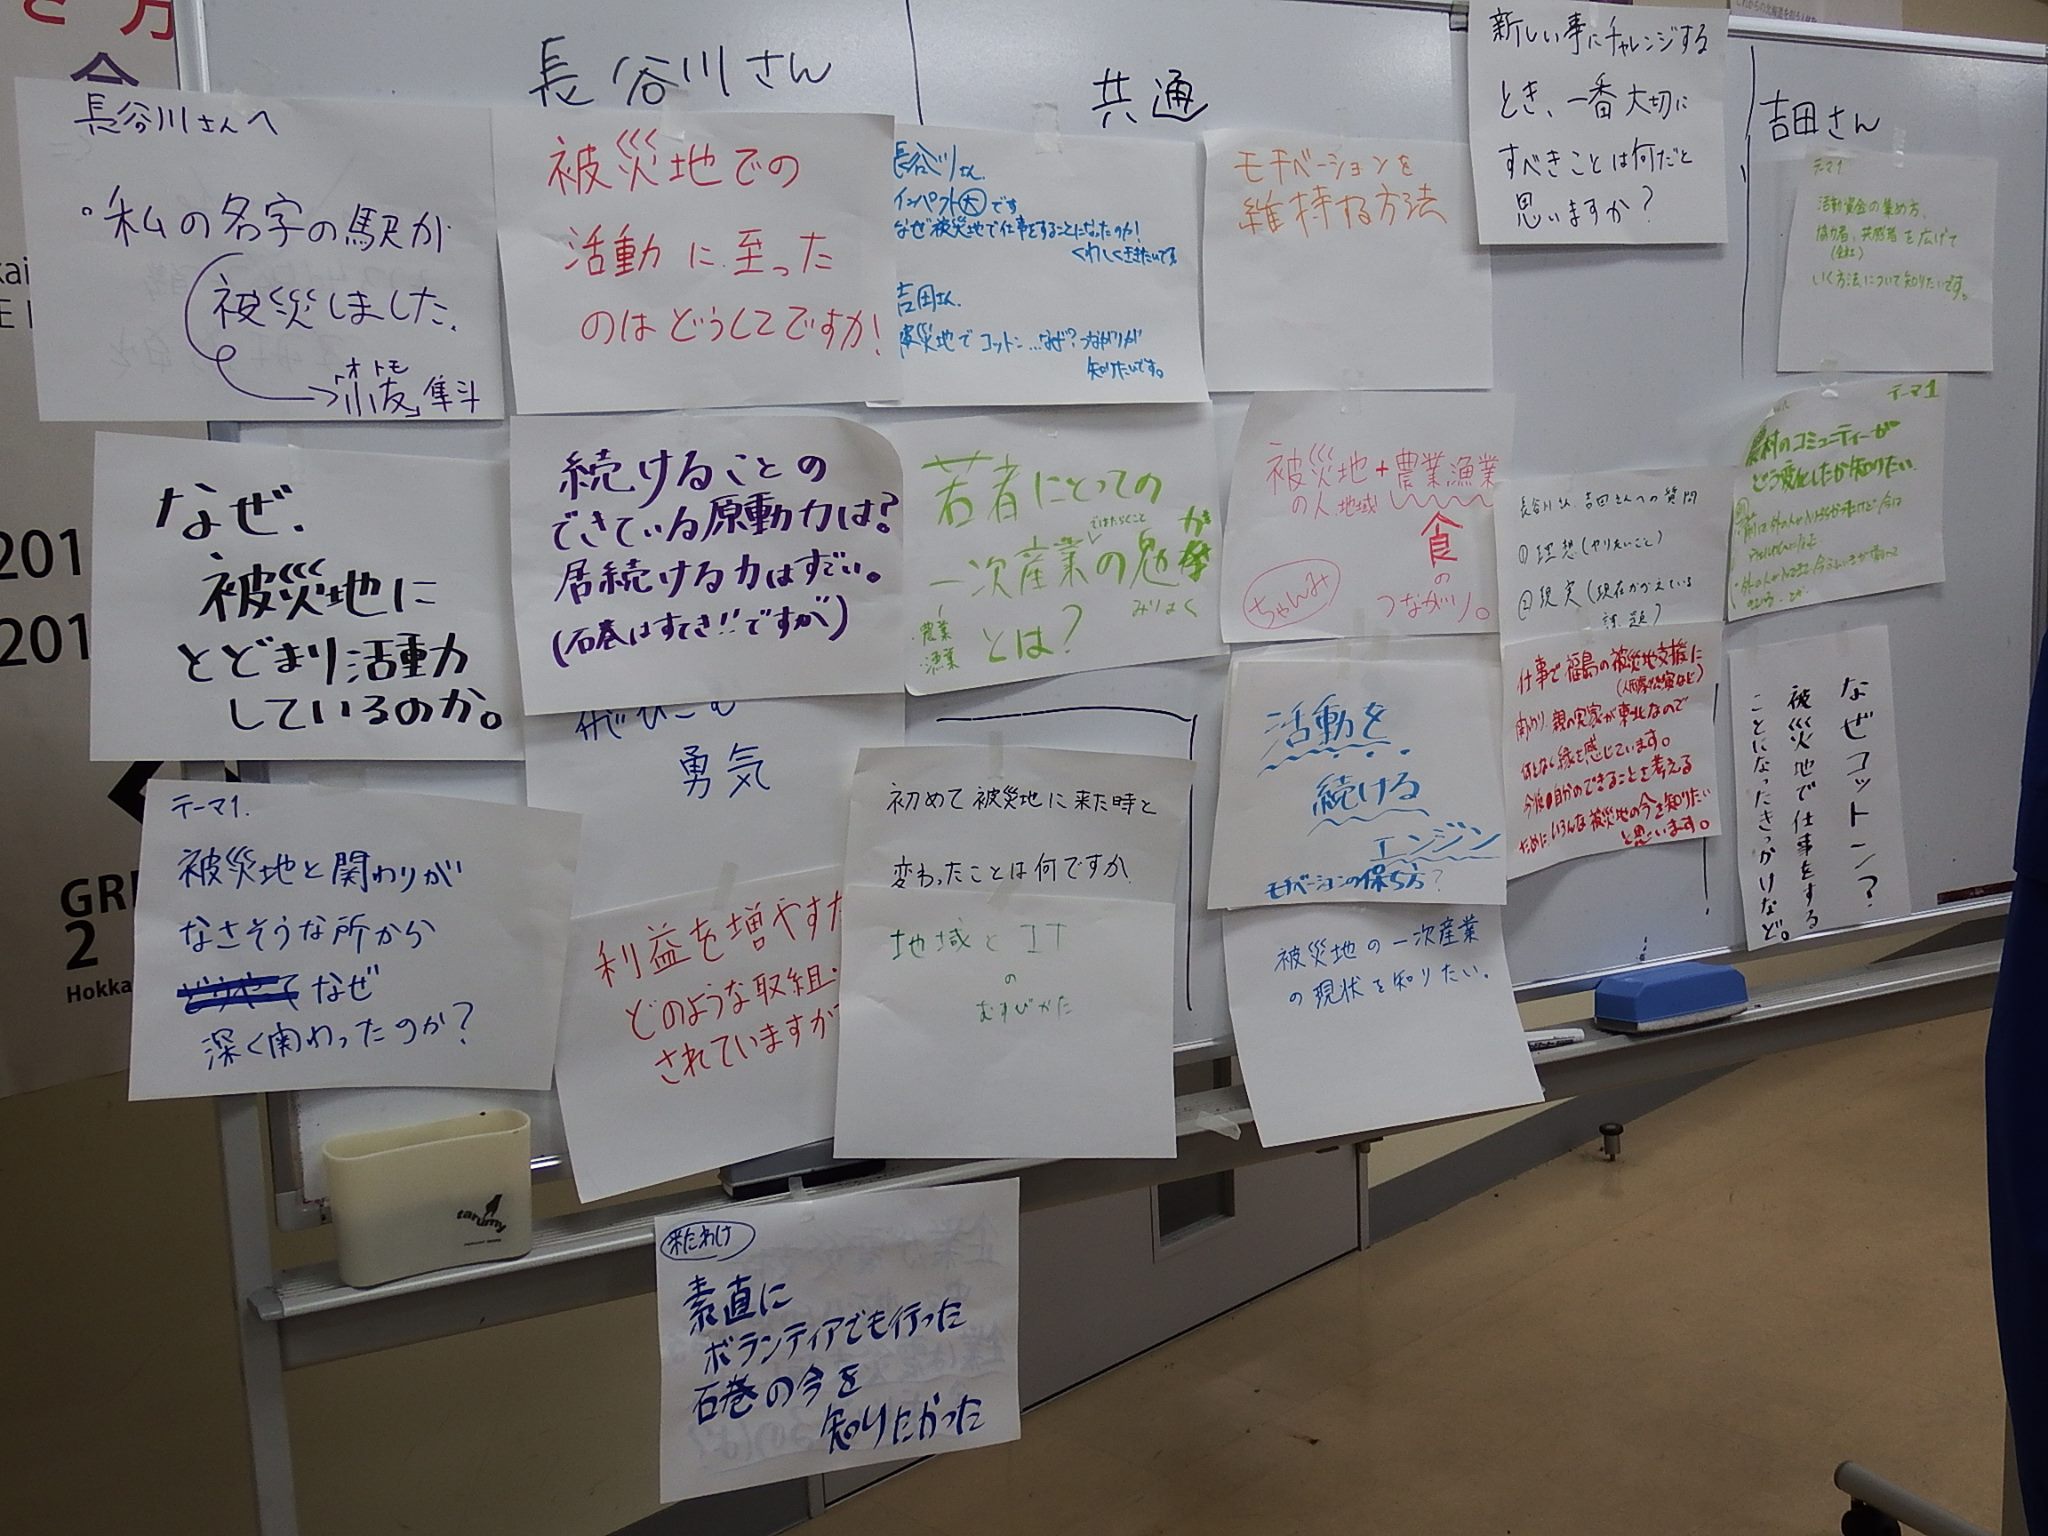 長谷川さん
共通
吉田さん
長谷川さんへ
・私の名字の駅が
被災しました。
オトモ
「小友」隼斗
被災地での
活動に至った
のはどうしてですか!
長谷川さん
インパクト大です
なぜ被災地で仕事をすることになったのか!
くわしくききたいです
吉田さん
被災地でコットン…なぜ?つながりが
知りたいです。
モチベーションを
維持する方法
新しい事にチャレンジする
とき、一番大切に
すべきことは何だと
思いますか?
テーマ1
活動資金の集め方、
協力者、共感者を広げて
いく方法について知りたいです。
なぜ、
被災地に
とどまり活動
しているのか。
続けることの
できている原動力は?
居続ける力はすごい。
(石巻はすてき!!ですが)
若者にとっての
ではたらくこと
一次産業の魅力
が
みりょく
・農業
・漁業
とは?
被災地+農業漁業
の人、地域
食
の
つながり。
ちゃんみ
長谷川さん、吉田さんへの質問
①理想(やりたいこと)
②現実(現在かかえている
課題)
テーマ1
農村のコミュニティーが
どう変化したか知りたい
飛びこむ
勇気
活動を
続ける
エンジン
モチベーションの保ち方?
仕事で福島の被災地支援に
関わり、親の実家が東北なので
何となく縁を感じています。
今後の自分のできることを考える
ためにいろんな被災地の今を知りたい
と思います。
なぜコットン?
被災地で仕事をする
ことになったきっかけなど。
テーマ1.
被災地と関わりが
なさそうな所から
どうやって なぜ
深く関わったのか?
利益を増やすた
どのような取組
されていますか
初めて被災地に来た時と
変わったことは何ですか
地域とIT
の
むすびかた
被災地の一次産業
の現状を知りたい。
来たわけ
素直に
ボランティアでも行った
石巻の今を
知りたかった
201
201
GR
2
Hokka
tarumy